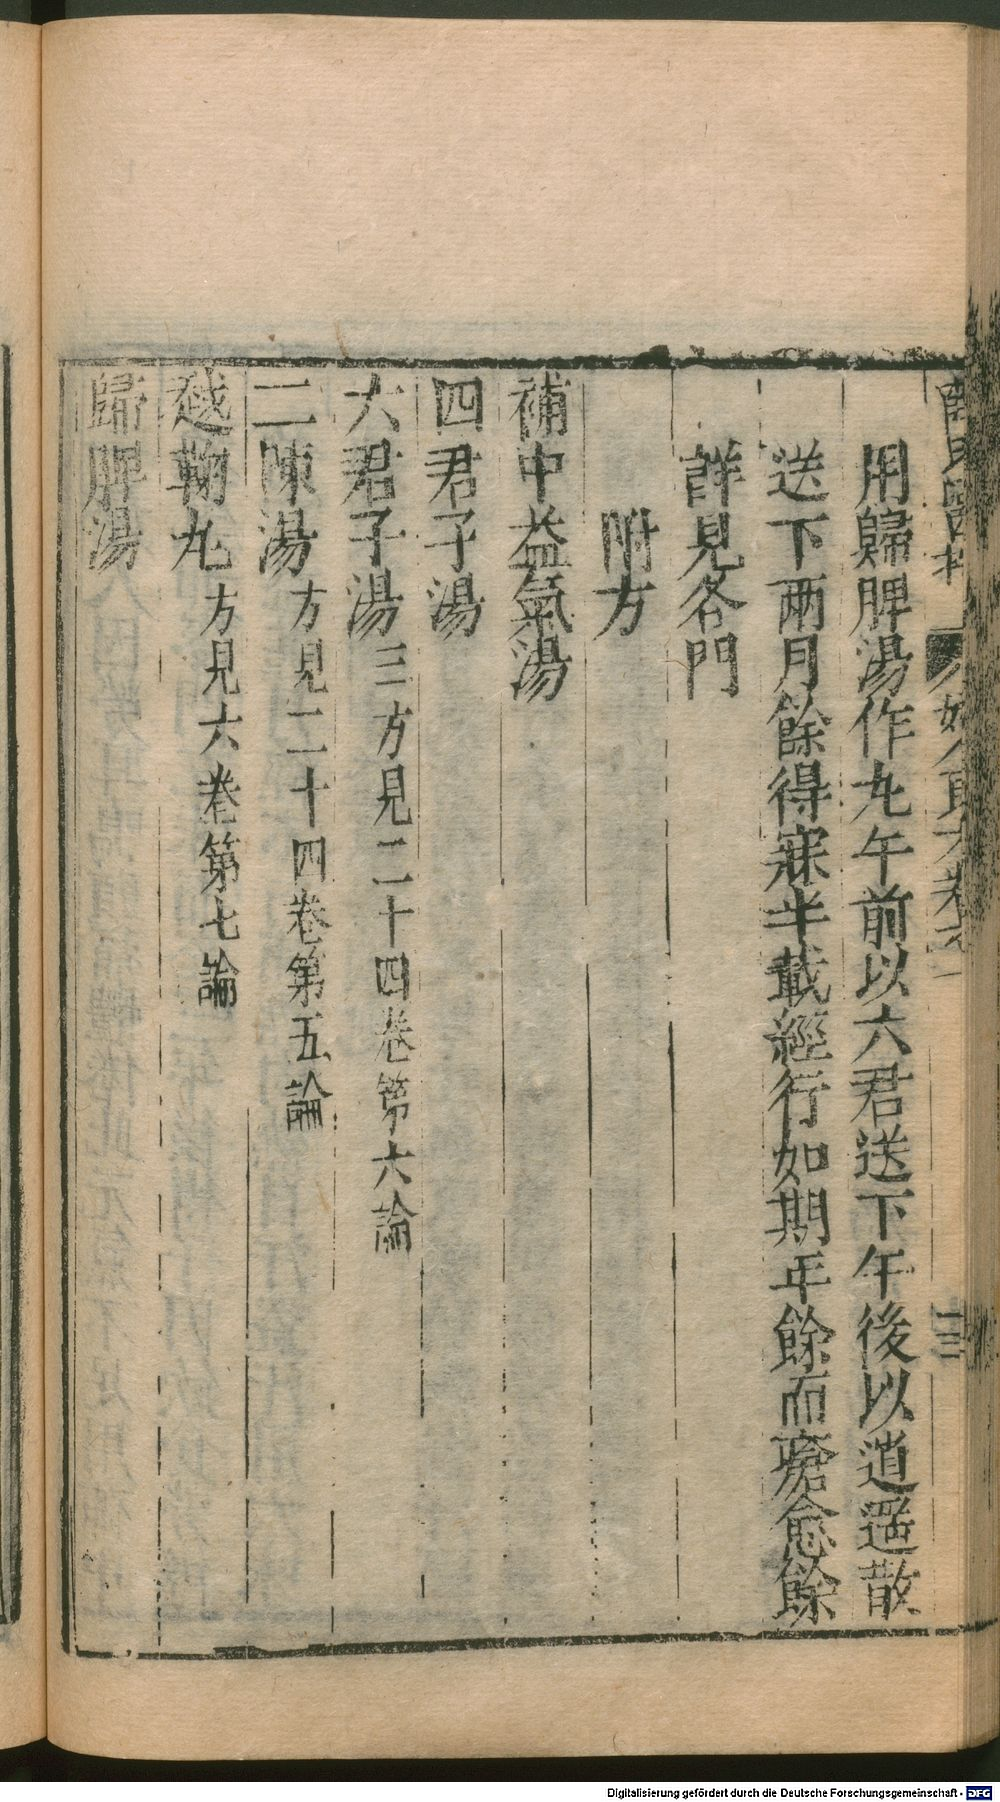 用歸脾湯作丸午前以六君送下午後以逍遥散
送下兩月餘得寐半載經行如期年餘而瘡愈餘
詳見各門
附方
補中益氣湯
四君子湯
六君子湯三方見二十四卷第六論
二陳湯方見二十四卷第五論
越鞠丸方見六卷第七論
歸脾湯
Digitalisierung gefördert durch die Deutsche Forschungsgemeinschaft - DFG